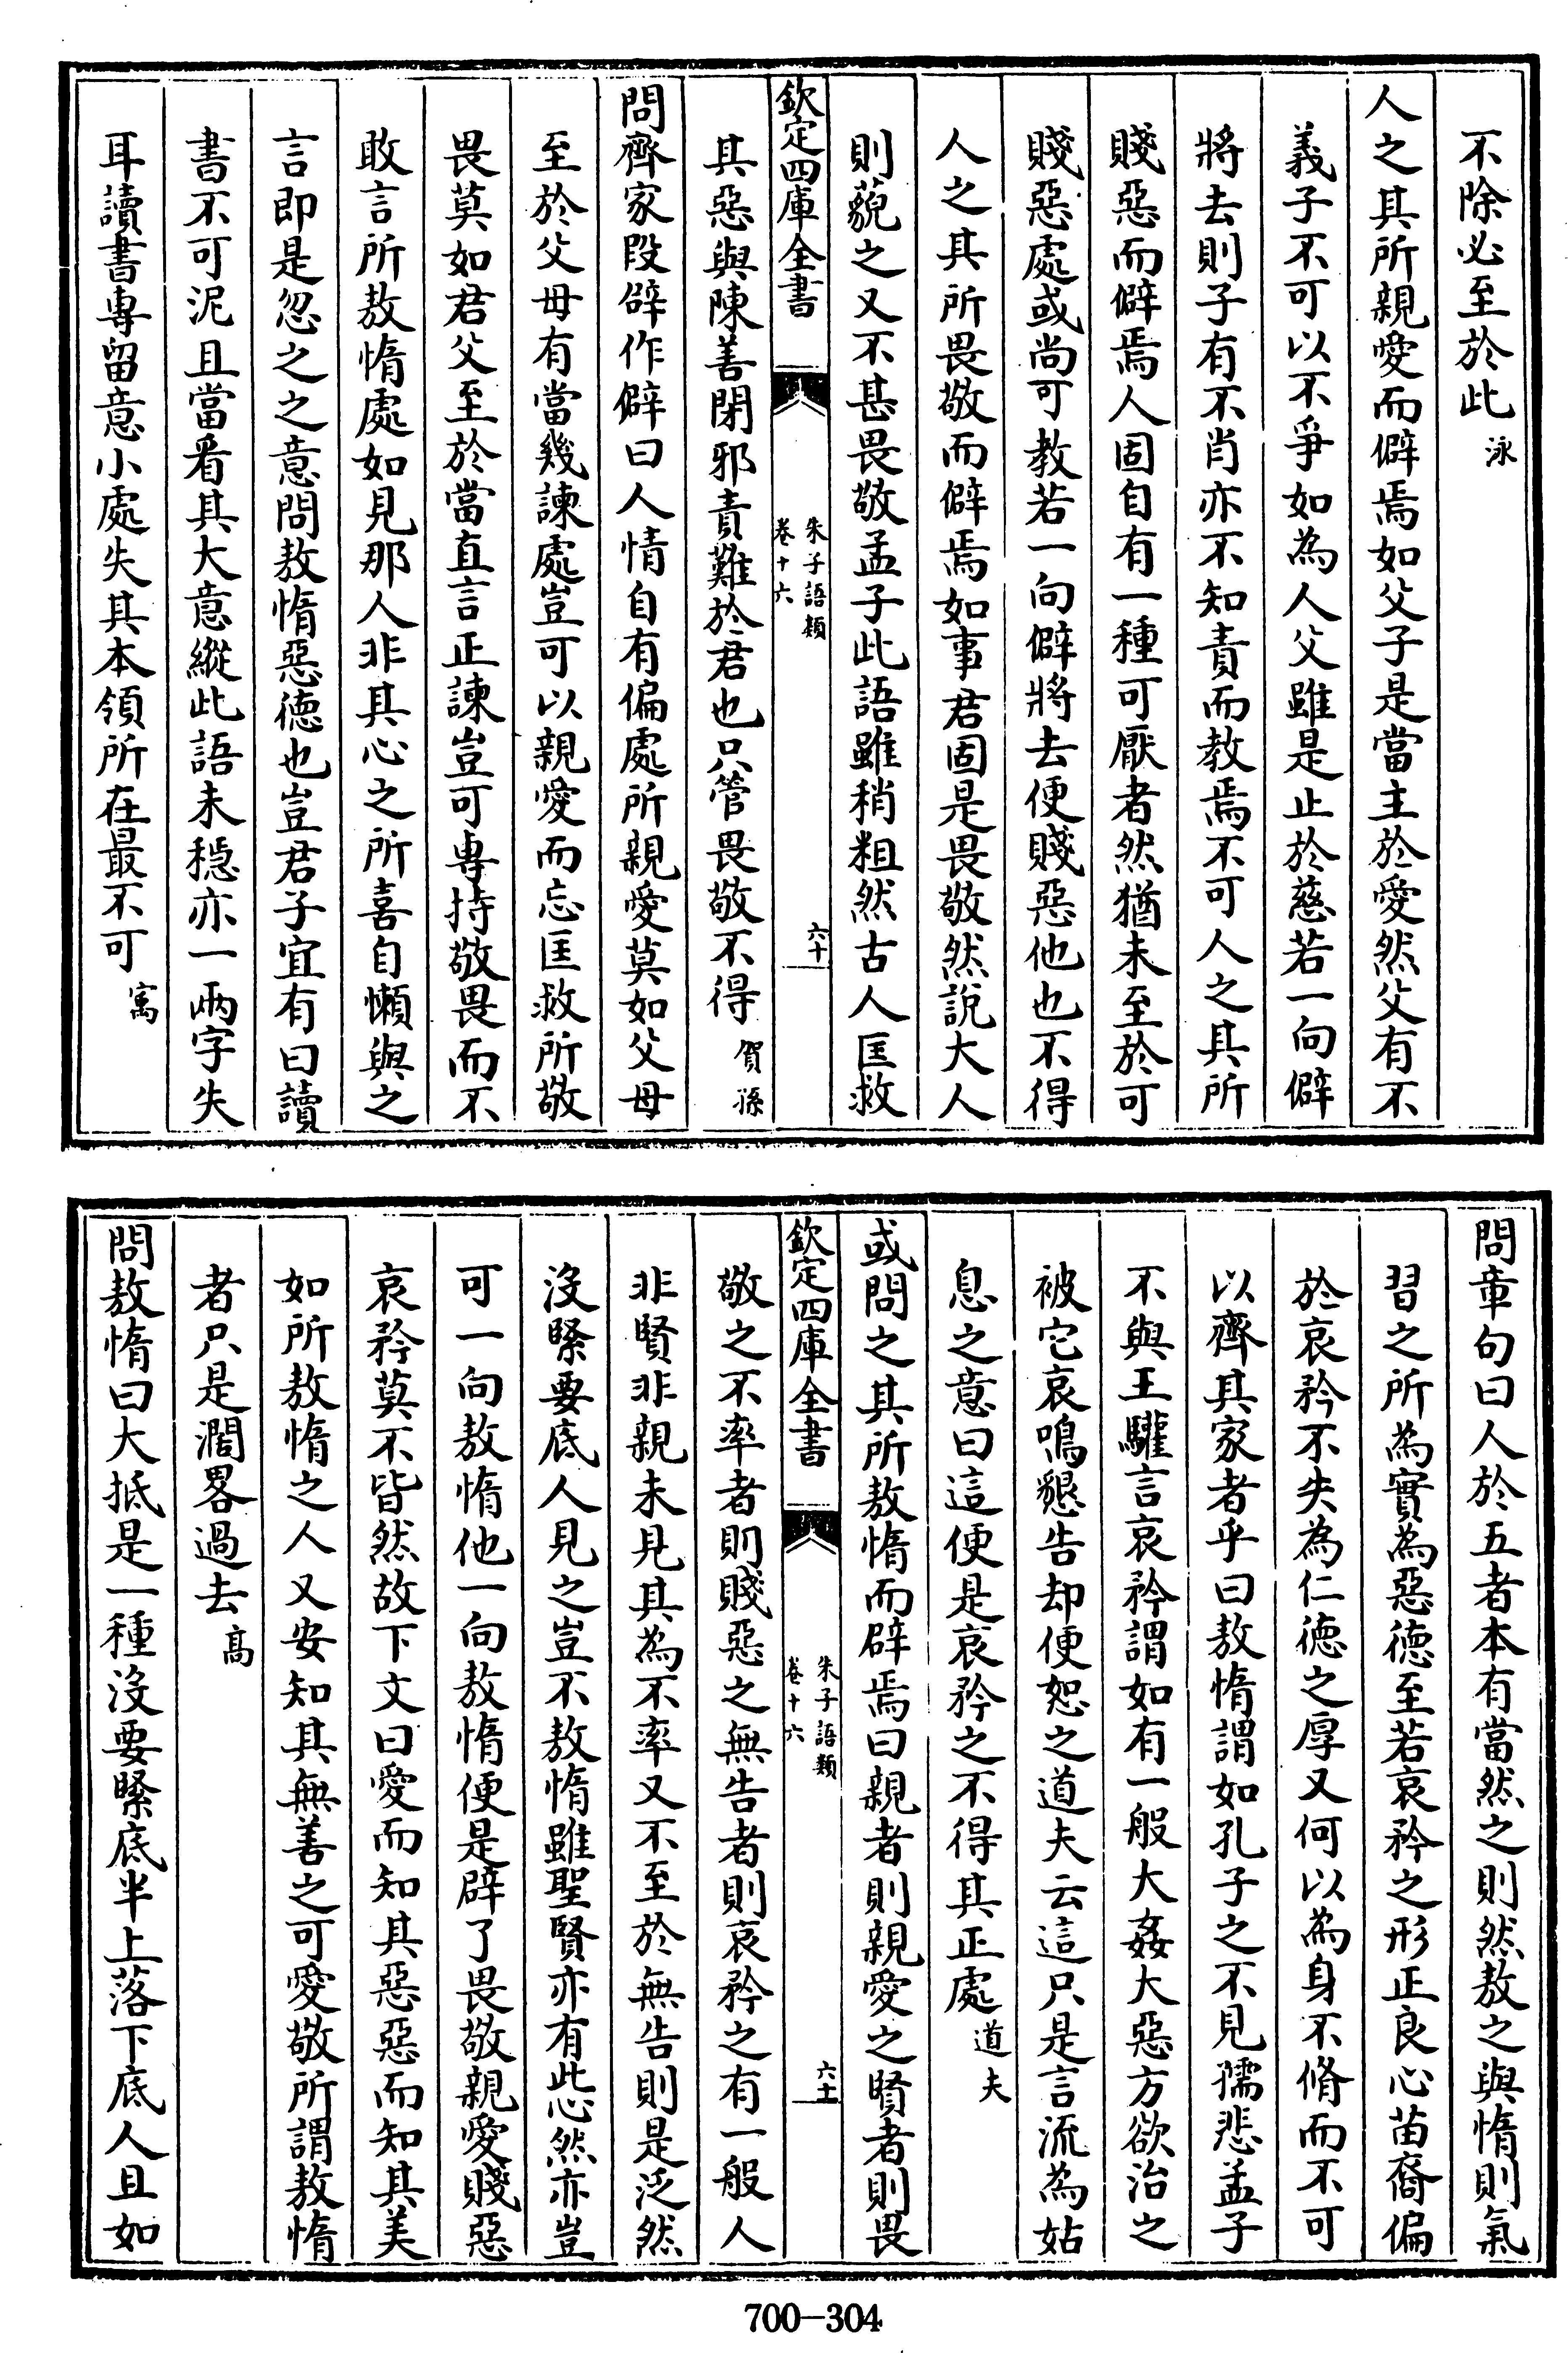 不除必至於此泳
人之其所親愛而僻焉如父子是當主於愛然父有不
義子不可以不爭如為人父雖是止於慈若一向僻
將去則子有不肖亦不知責而教焉不可人之其所
賤惡而僻焉人固自有一種可厭者然猶未至於可
賤惡處或尚可教若一向僻將去便賤惡他也不得
人之其所畏敬而僻焉如事君固是畏敬然說大人
則藐之又不甚畏敬孟子此語雖稍粗然古人匡救
欽定四庫全書
朱子語類
卷十六
六十
其惡與陳善閉邪責難於君也只管畏敬不得賀孫
問齊家段辟作僻曰人情自有偏處所親愛莫如父母
至於父母有當幾諫處豈可以親愛而忘匡救所敬
畏莫如君父至於當直言正諫豈可專持敬畏而不
敢言所敖惰處如見那人非其心之所喜自懶與之
言即是忽之之意問敖惰惡徳也豈君子宜有曰讀
書不可泥且當看其大意縱此語未穩亦一兩字失
耳讀書專留意小處失其本領所在最不可㝢
問章句曰人於五者本有當然之則然敖之與惰則氣
習之所為實為惡徳至若哀矜之形正良心苗裔偏
於哀矜不失為仁徳之厚又何以為身不脩而不可
以齊其家者乎曰敖惰謂如孔子之不見孺悲孟子
不與王驩言哀矜謂如有一般大姦大惡方欲治之
被它哀鳴懇告却便恕之道夫云這只是言流為姑
息之意曰這便是哀矜之不得其正處道夫
或問之其所敖惰而辟焉曰親者則親愛之賢者則畏
欽定四庫全書
朱子語類
卷十六
六十一
敬之不率者則賤惡之無告者則哀矜之有一般人
非賢非親未見其為不率又不至於無告則是泛然
沒緊要底人見之豈不敖惰雖聖賢亦有此心然亦豈
可一向敖惰他一向敖惰便是辟了畏敬親愛賤惡
哀矜莫不皆然故下文曰愛而知其惡惡而知其美
如所敖惰之人又安知其無善之可愛敬所謂敖惰
者只是濶畧過去㽦
問敖惰曰大抵是一種沒要緊底半上落下底人且如
700-304